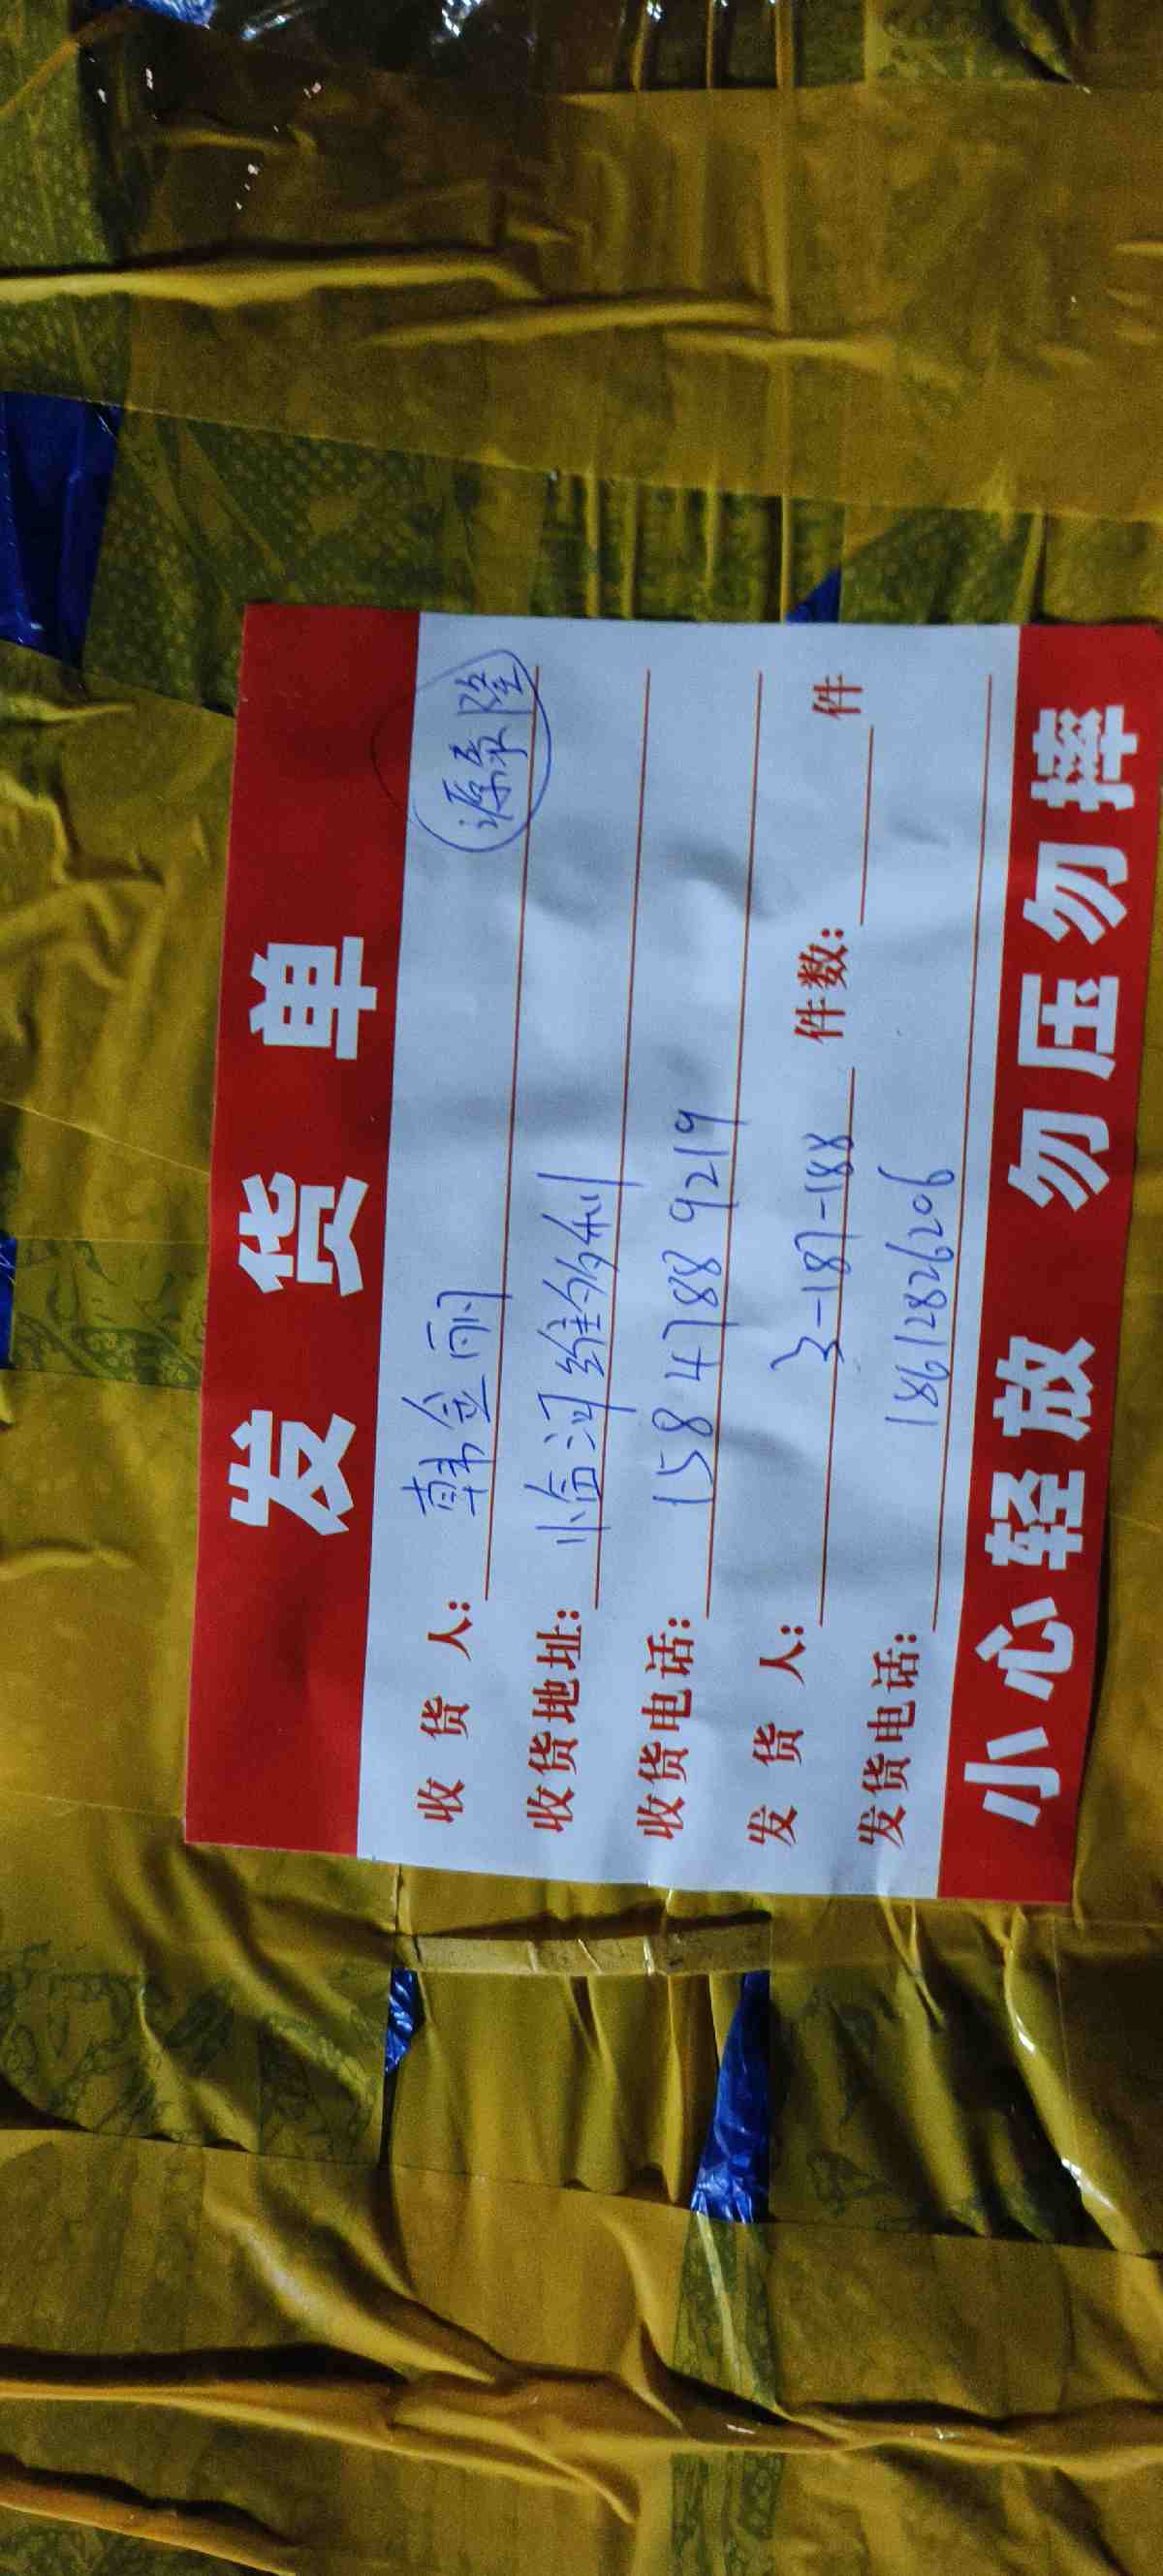 发货单
收货人：韩金丽 源泉隆
收货地址：临河维多利
收货电话：158 4788 9219
发货人：3-187-188 件数： 件
发货电话：18612826206
小心轻放 勿压勿摔